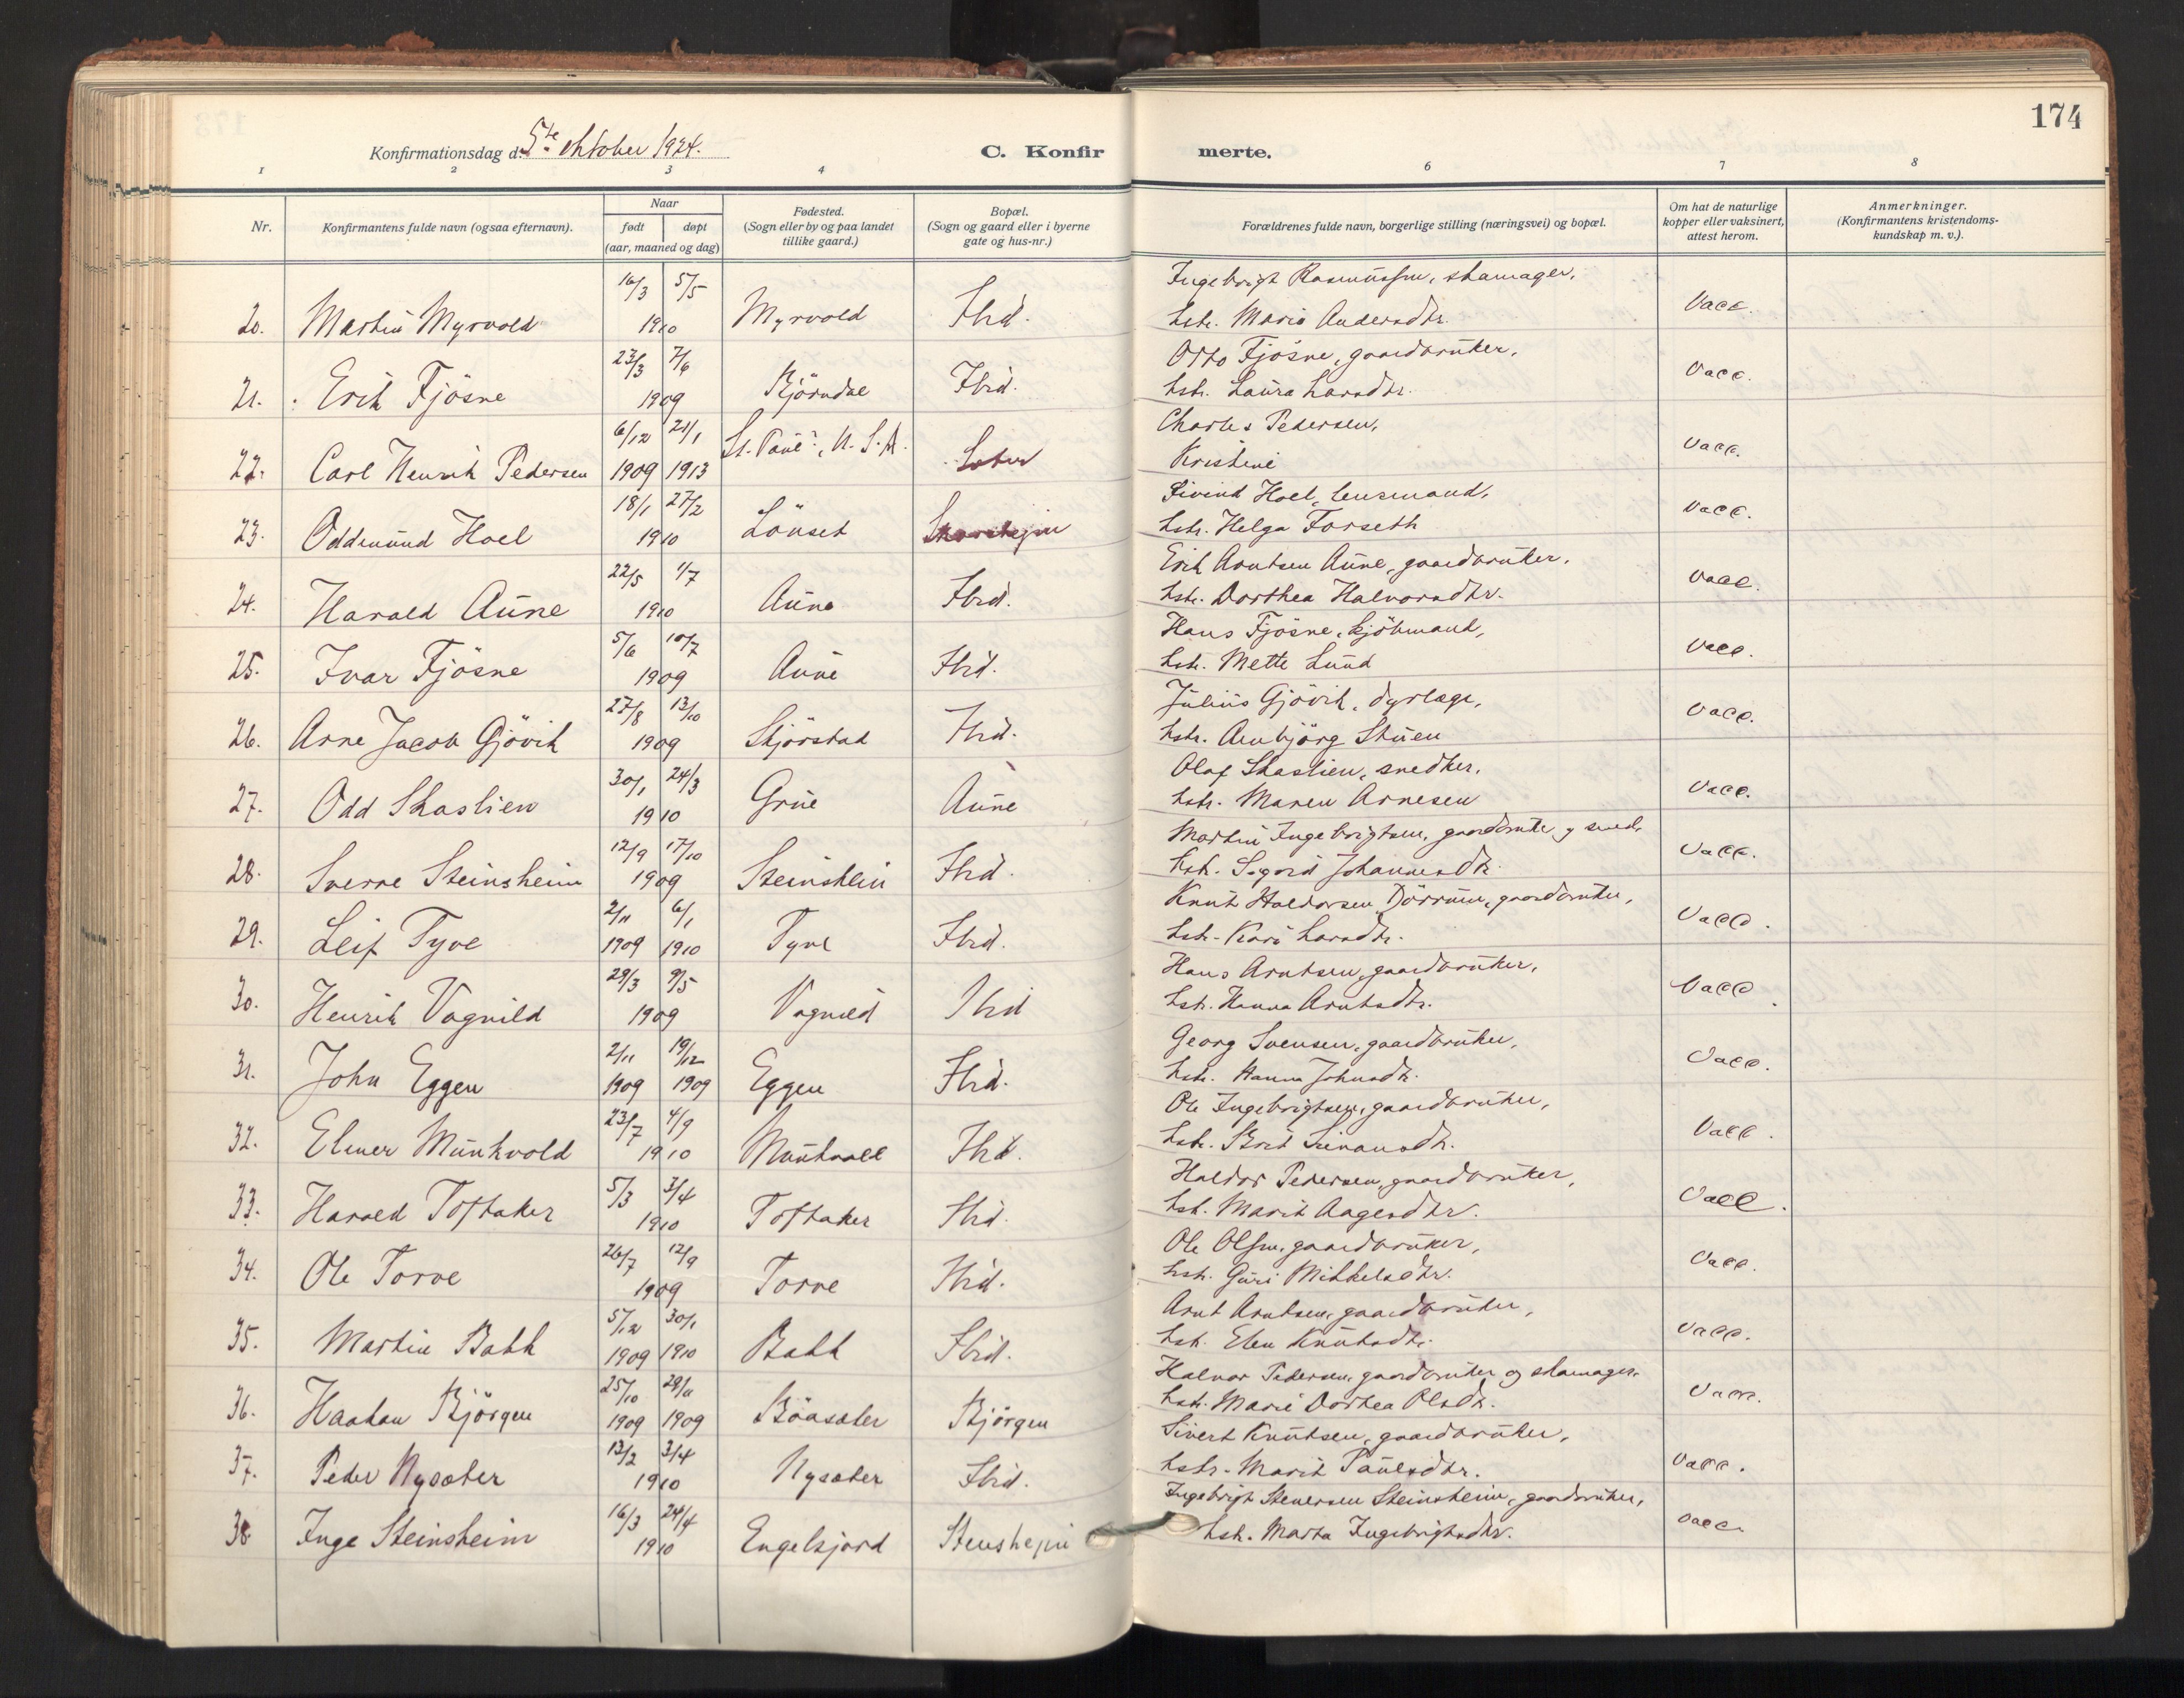 174
Konfirmationsdag d. 5te oktober 1924.
C. Konfirmerte.
1 2 3 4 6 7 8
Nr.
Konfirmantens fulde navn (ogsaa efternavn).
Naar
født døpt
(aar, maaned og dag)
Fødested.
(Sogn eller by og paa landet
tillike gaard.)
Bopæl.
(Sogn og gaard eller i byerne
gate og hus-nr.)
Forældrenes fulde navn, borgerlige stilling (næringsvei) og bopæl.
Om hat de naturlige
kopper eller vaksinert,
attest herom.
Anmerkninger.
(Konfirmantens kristendoms-
kundskap m. v.).
16/3 5/5 Ingebrigt Rasmussen, skomager,
20. Martin Myrvold 1910 Myrvold Ibid. hstr. Marie Andersdtr. Vacc.
23/3 7/6 Otto Fjösne, gaardbruker,
21. Erik Fjösne 1909 Björndal Ibid. hstr. Laura Larsdtr. Vacc.
6/12 21/1 Charles Pedersen,
22. Carl Henrik Pedersen 1909 1913 St. Paul, U.S.A. Kristine Vacc.
18/1 27/2 Eivind Hoel, lensmand,
23. Oddmund Hoel 1910 Lönset hstr. Helga Forseth Vacc.
22/5 1/7 Erik Arntsen Aune, gaardbruker,
24. Harald Aune 1910 Aune Ibid. hstr. Dorthea Halvorsdtr. Vacc.
5/6 10/7 Hans Fjösne, kjöbmand,
25. Ivar Fjösne 1909 Aune Ibid. hstr. Mette Lund Vacc.
27/8 13/10 Julius Gjövik, dyrlæge,
26. Arne Jacob Gjövik 1909 Skjörstad Ibid. hstr. Arnbjörg Stuen Vacc.
30/1 24/3 Olaf Skaslien, snedker,
27. Odd Skaslien 1910 Grue Aune hstr. Maren Arnesen Vacc.
12/9 17/10 Martin Ingebrigtsen, gaardbruker og smed,
28. Sverre Steinsheim 1909 Steinsheim Ibid. hstr. Sigrid Johannesdtr. Vacc.
2/11 6/1 Knut Haldorsen Dörrum, gaardbruker,
29. Leif Tyve 1909 1910 Tyve Ibid. hstr. Kari Larsdtr. Vacc.
29/3 9/5 Hans Arntsen, gaardbruker,
30. Henrik Vognild 1909 Vognild Ibid hstr. Hanna Arntsdtr. Vacc.
2/11 19/12 Georg Svensen, gaardbruker,
31. John Eggen 1909 1909 Eggen Ibid. hstr. Hanna Johnsdtr. Vacc.
23/7 4/9 Ole Ingebrigtsen, gaardbruker,
32. Elmer Munkvold 1910 Munkvold Ibid. hstr. Brit Vacc.
5/3 3/4 Haldor Pedersen, gaardbruker,
33. Harald Toftaker 1910 Toftaker Ibid. hstr. Marit Aagesdtr. Vacc.
26/7 12/9 Ole Olsen, gaardbruker,
34. Ole Torve 1909 Torve Ibid. hstr. Guri Mikkelsdtr. Vacc.
5/12 30/1 Arnt Arntsen, gaardbruker,
35. Martin Bakk 1909 1910 Bakk Ibid. hstr. Elen Knutsdtr. Vacc.
25/10 29/11 Halvor Pedersen, gaardbruker og skomager,
36. Haakon Björgen 1909 1909 Böasæter Björgen hstr. Marie Dorthea Olsdtr. Vacc.
13/2 3/4 Sivert Knutsen, gaardbruker,
37. Peder Nysæter 1910 Nysæter Ibid. hstr. Marit Paulsdtr. Vacc.
16/3 24/4 Ingebrigt Stenersen Steinsheim, gaardbruker,
38 Inge Steinsheim 1910 Engelsjord Stensheim hstr. Marta Ingebrigtsdtr. Vacc.